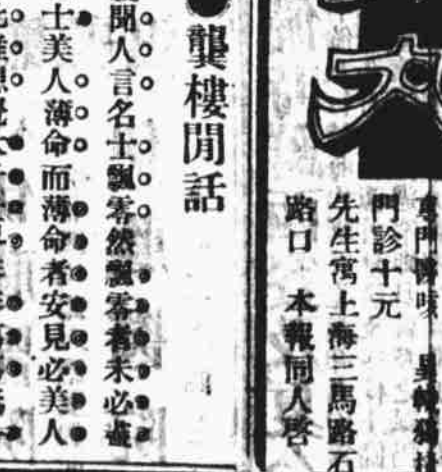 專門醫
門診十元
先生寓上海三馬路石
路口 本報同人啓
龔樓閒話
聞人言名士飄零然飄零者未必盡
士美人薄命而薄命者安見必美人